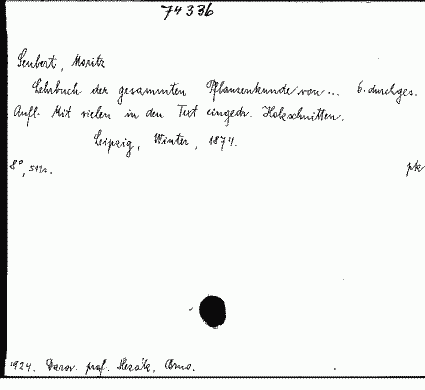 74336
Seubert, Moritz
Lehrbuch der gesammten Pflanzenkunde von... 6. durchges.
Aufl. Mit vielen in den Text eingedr. Holzschnitten.
Leipzig, Winter, 1874.
8°,
pk
1924. Darov. prof. Brno.